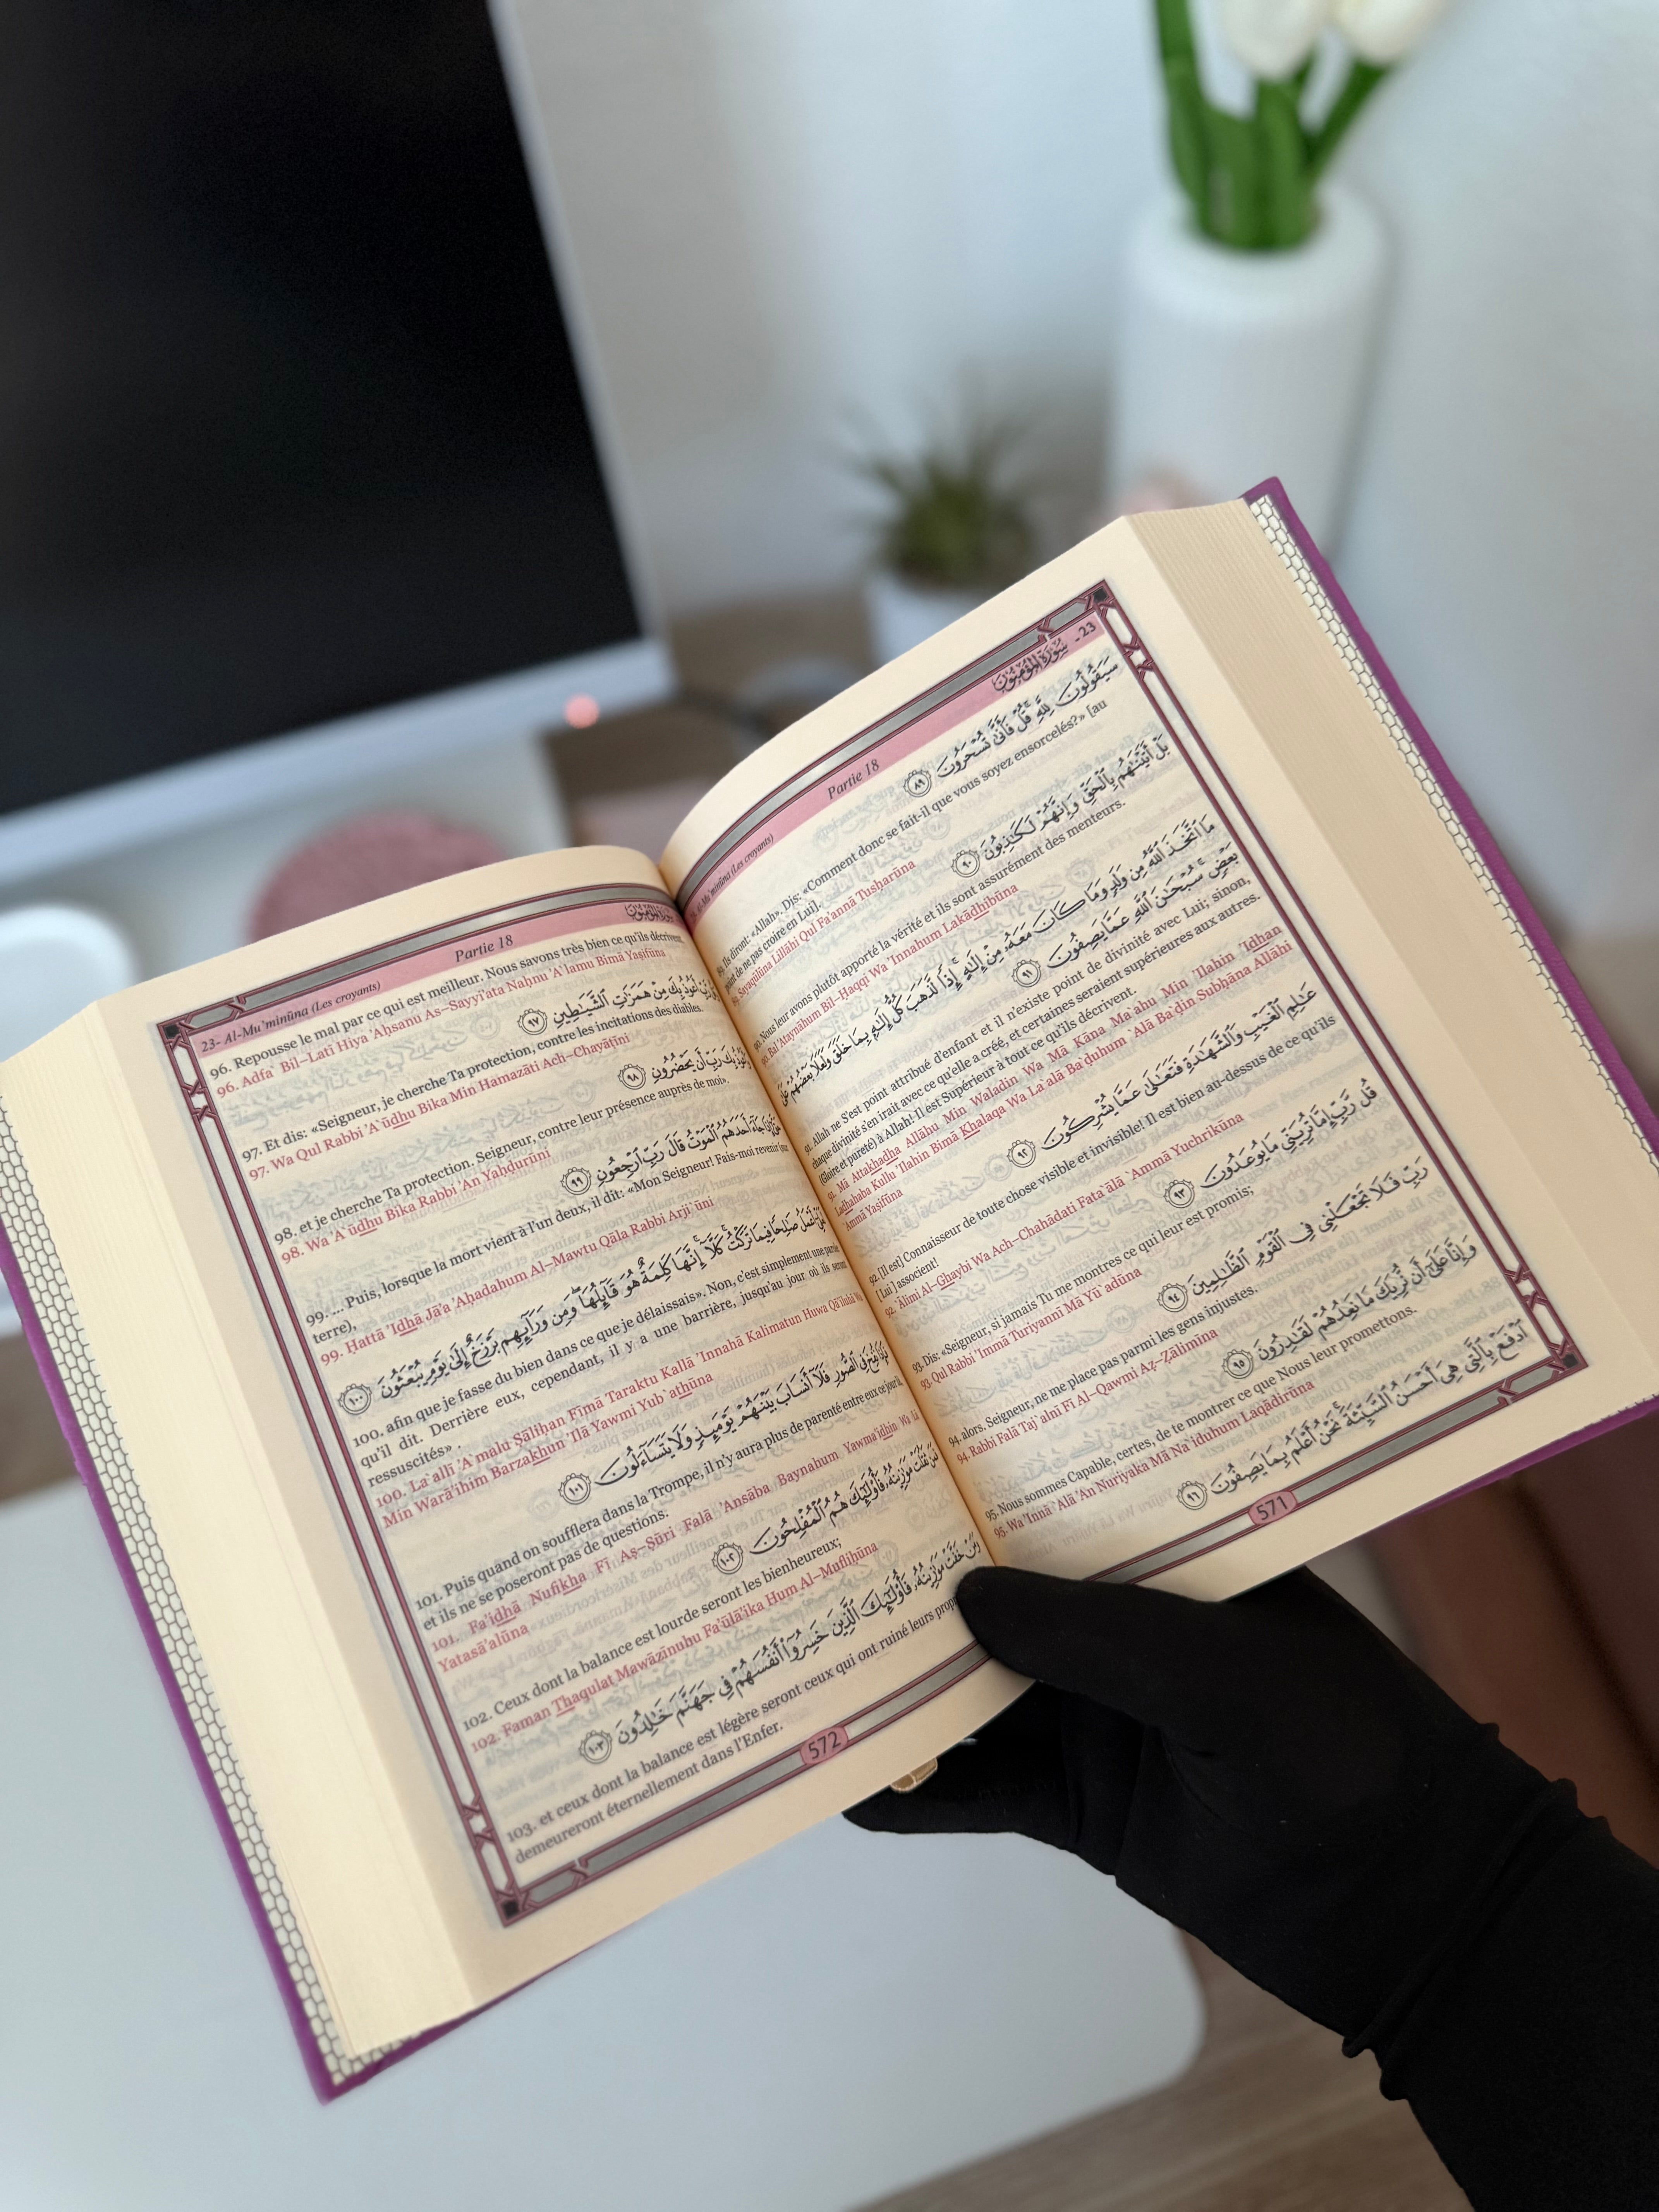 Al-Mu'minūna (Les croyants) Partie 18 سُورَةُ المُؤْمِنُون - 23
سَيَقُولُونَ لِلَّهِ قُلْ فَأَنَّىٰ تُسْحَرُونَ ٨٩
89. Ils diront: «Allah». Dis: «Comment donc se fait-il que vous soyez ensorcelés?» [au
point de ne pas croire en Lui].
89. Sayaqūlūna Lillāhi Qul Fa'anná Tusĥarūna
بَلْ أَتَيْنَٰهُم بِٱلْحَقِّ وَإِنَّهُمْ لَكَٰذِبُونَ ٩٠
90. Nous leur avons plutôt apporté la vérité et ils sont assurément des menteurs.
90. Bal 'Ataynāhum Bil-Ĥaqqi Wa 'Innahum Lakādhibūna
مَا ٱتَّخَذَ ٱللَّهُ مِن وَلَدٍ وَمَا كَانَ مَعَهُۥ مِنْ إِلَٰهٍ إِذًا لَّذَهَبَ كُلُّ إِلَٰهٍۭ بِمَا خَلَقَ وَلَعَلَا بَعْضُهُمْ عَلَىٰ
بَعْضٍ سُبْحَٰنَ ٱللَّهِ عَمَّا يَصِفُونَ ٩١
91. Allah ne S'est point attribué d'enfant et il n'existe point de divinité avec Lui; sinon,
chaque divinité s'en irait avec ce qu'elle a créé, et certaines seraient supérieures aux autres.
(Gloire et pureté) à Allah! Il est Supérieur à tout ce qu'ils décrivent.
91. Mā Attakhadha Allāhu Min Waladin Wa Mā Kāna Ma`ahu Min 'Ilahin 'Idhan
Ladhahaba Kullu 'Ilahin Bimā Khalaqa Wa La`alā Ba`đuhum `Alá Ba`đin Subĥāna Allāhi
`Ammā Yaşifūna
عَٰلِمِ ٱلْغَيْبِ وَٱلشَّهَٰدَةِ فَتَعَٰلَىٰ عَمَّا يُشْرِكُونَ ٩٢
92. [Il est] Connaisseur de toute chose visible et invisible! Il est bien au-dessus de ce qu'ils
[Lui] associent!
92. `Ālimi Al-Ghaybi Wa Ach-Chahādati Fata`ālá `Ammā Yuchrikūna
قُل رَّبِّ إِمَّا تُرِيَنِّى مَا يُوعَدُونَ ٩٣
93. Dis: «Seigneur, si jamais Tu me montres ce qui leur est promis;
93. Qul Rabbi 'Immā Turiyannī Mā Yū`adūna
رَبِّ فَلَا تَجْعَلْنِى فِى ٱلْقَوْمِ ٱلظَّٰلِمِينَ ٩٤
94. alors, Seigneur, ne me place pas parmi les gens injustes.
94. Rabbi Falā Taj`alnī Fī Al-Qawmi Až-Žālimīna
وَإِنَّا عَلَىٰٓ أَن نُّرِيَكَ مَا نَعِدُهُمْ لَقَٰدِرُونَ ٩٥
95. Nous sommes Capable, certes, de te montrer ce que Nous leur promettons.
95. Wa 'Innā `Alá 'An Nuriyaka Mā Na`iduhum Laqādirūna
ٱدْفَعْ بِٱلَّتِى هِىَ أَحْسَنُ ٱلسَّيِّئَةَ نَحْنُ أَعْلَمُ بِمَا يَصِفُونَ ٩٦
571
23- Al-Mu'minūna (Les croyants) Partie 18 سُورَةُ المُؤْمِنُون
96. Repousse le mal par ce qui est meilleur. Nous savons très bien ce qu'ils décrivent.
96. Adfa` Bil-Latī Hiya 'Aĥsanu As-Sayyi'ata Naĥnu 'A`lamu Bimā Yaşifūna
أَعُوذُ بِكَ مِنْ هَمَزَٰتِ ٱلشَّيَٰطِينِ ٩٧
97. Et dis: «Seigneur, je cherche Ta protection, contre les incitations des diables.
97. Wa Qul Rabbi 'A`ūdhu Bika Min Hamazāti Ach-Chayāţīni
وَأَعُوذُ بِكَ رَبِّ أَن يَحْضُرُونِ ٩٨
98. et je cherche Ta protection, Seigneur, contre leur présence auprès de moi».
98. Wa 'A`ūdhu Bika Rabbi 'An Yaĥđurūni
إِذَا جَآءَ أَحَدَهُمُ ٱلْمَوْتُ قَالَ رَبِّ ٱرْجِعُونِ ٩٩
99. ... Puis, lorsque la mort vient à l'un deux, il dit: «Mon Seigneur! Fais-moi revenir (sur
terre),
99. Ĥattá 'Idhā Jā'a 'Aĥadahum Al-Mawtu Qāla Rabbi Arji`ūni
أَعْمَلُ صَٰلِحًا فِيمَا تَرَكْتُ كَلَّآ إِنَّهَا كَلِمَةٌ هُوَ قَآئِلُهَا وَمِن وَرَآئِهِم بَرْزَخٌ إِلَىٰ يَوْمِ يُبْعَثُونَ ١٠٠
100. afin que je fasse du bien dans ce que je délaissais». Non, c'est simplement une parole
qu'il dit. Derrière eux, cependant, il y a une barrière, jusqu'au jour où ils seront
ressuscités».
100. La`allī 'A`malu Şāliĥan Fīmā Taraktu Kallā 'Innahā Kalimatun Huwa Qā'iluhā Wa
Min Warā'ihim Barzakhun 'Ilá Yawmi Yub`athūna
فَإِذَا نُفِخَ فِى ٱلصُّورِ فَلَآ أَنسَابَ بَيْنَهُمْ يَوْمَئِذٍ وَلَا يَتَسَآءَلُونَ ١٠١
101. Puis quand on soufflera dans la Trompe, il n'y aura plus de parenté entre eux ce jour là,
et ils ne se poseront pas de questions.
101. Fa'idhā Nufikha Fī Aş-Şūri Falā 'Ansāba Baynahum Yawma'idhin Wa Lā
Yatasā'alūna
فَمَن ثَقُلَتْ مَوَٰزِينُهُۥ فَأُو۟لَٰٓئِكَ هُمُ ٱلْمُفْلِحُونَ ١٠٢
102. Ceux dont la balance est lourde seront les bienheureux;
102. Faman Thaqulat Mawāzīnuhu Fa'ūlā'ika Hum Al-Mufliĥūna
وَمَنْ خَفَّتْ مَوَٰزِينُهُۥ فَأُو۟لَٰٓئِكَ ٱلَّذِينَ خَسِرُوٓا۟ أَنفُسَهُمْ فِى جَهَنَّمَ خَٰلِدُونَ ١٠٣
103. et ceux dont la balance est légère seront ceux qui ont ruiné leurs
demeureront éternellement dans l'Enfer.
572